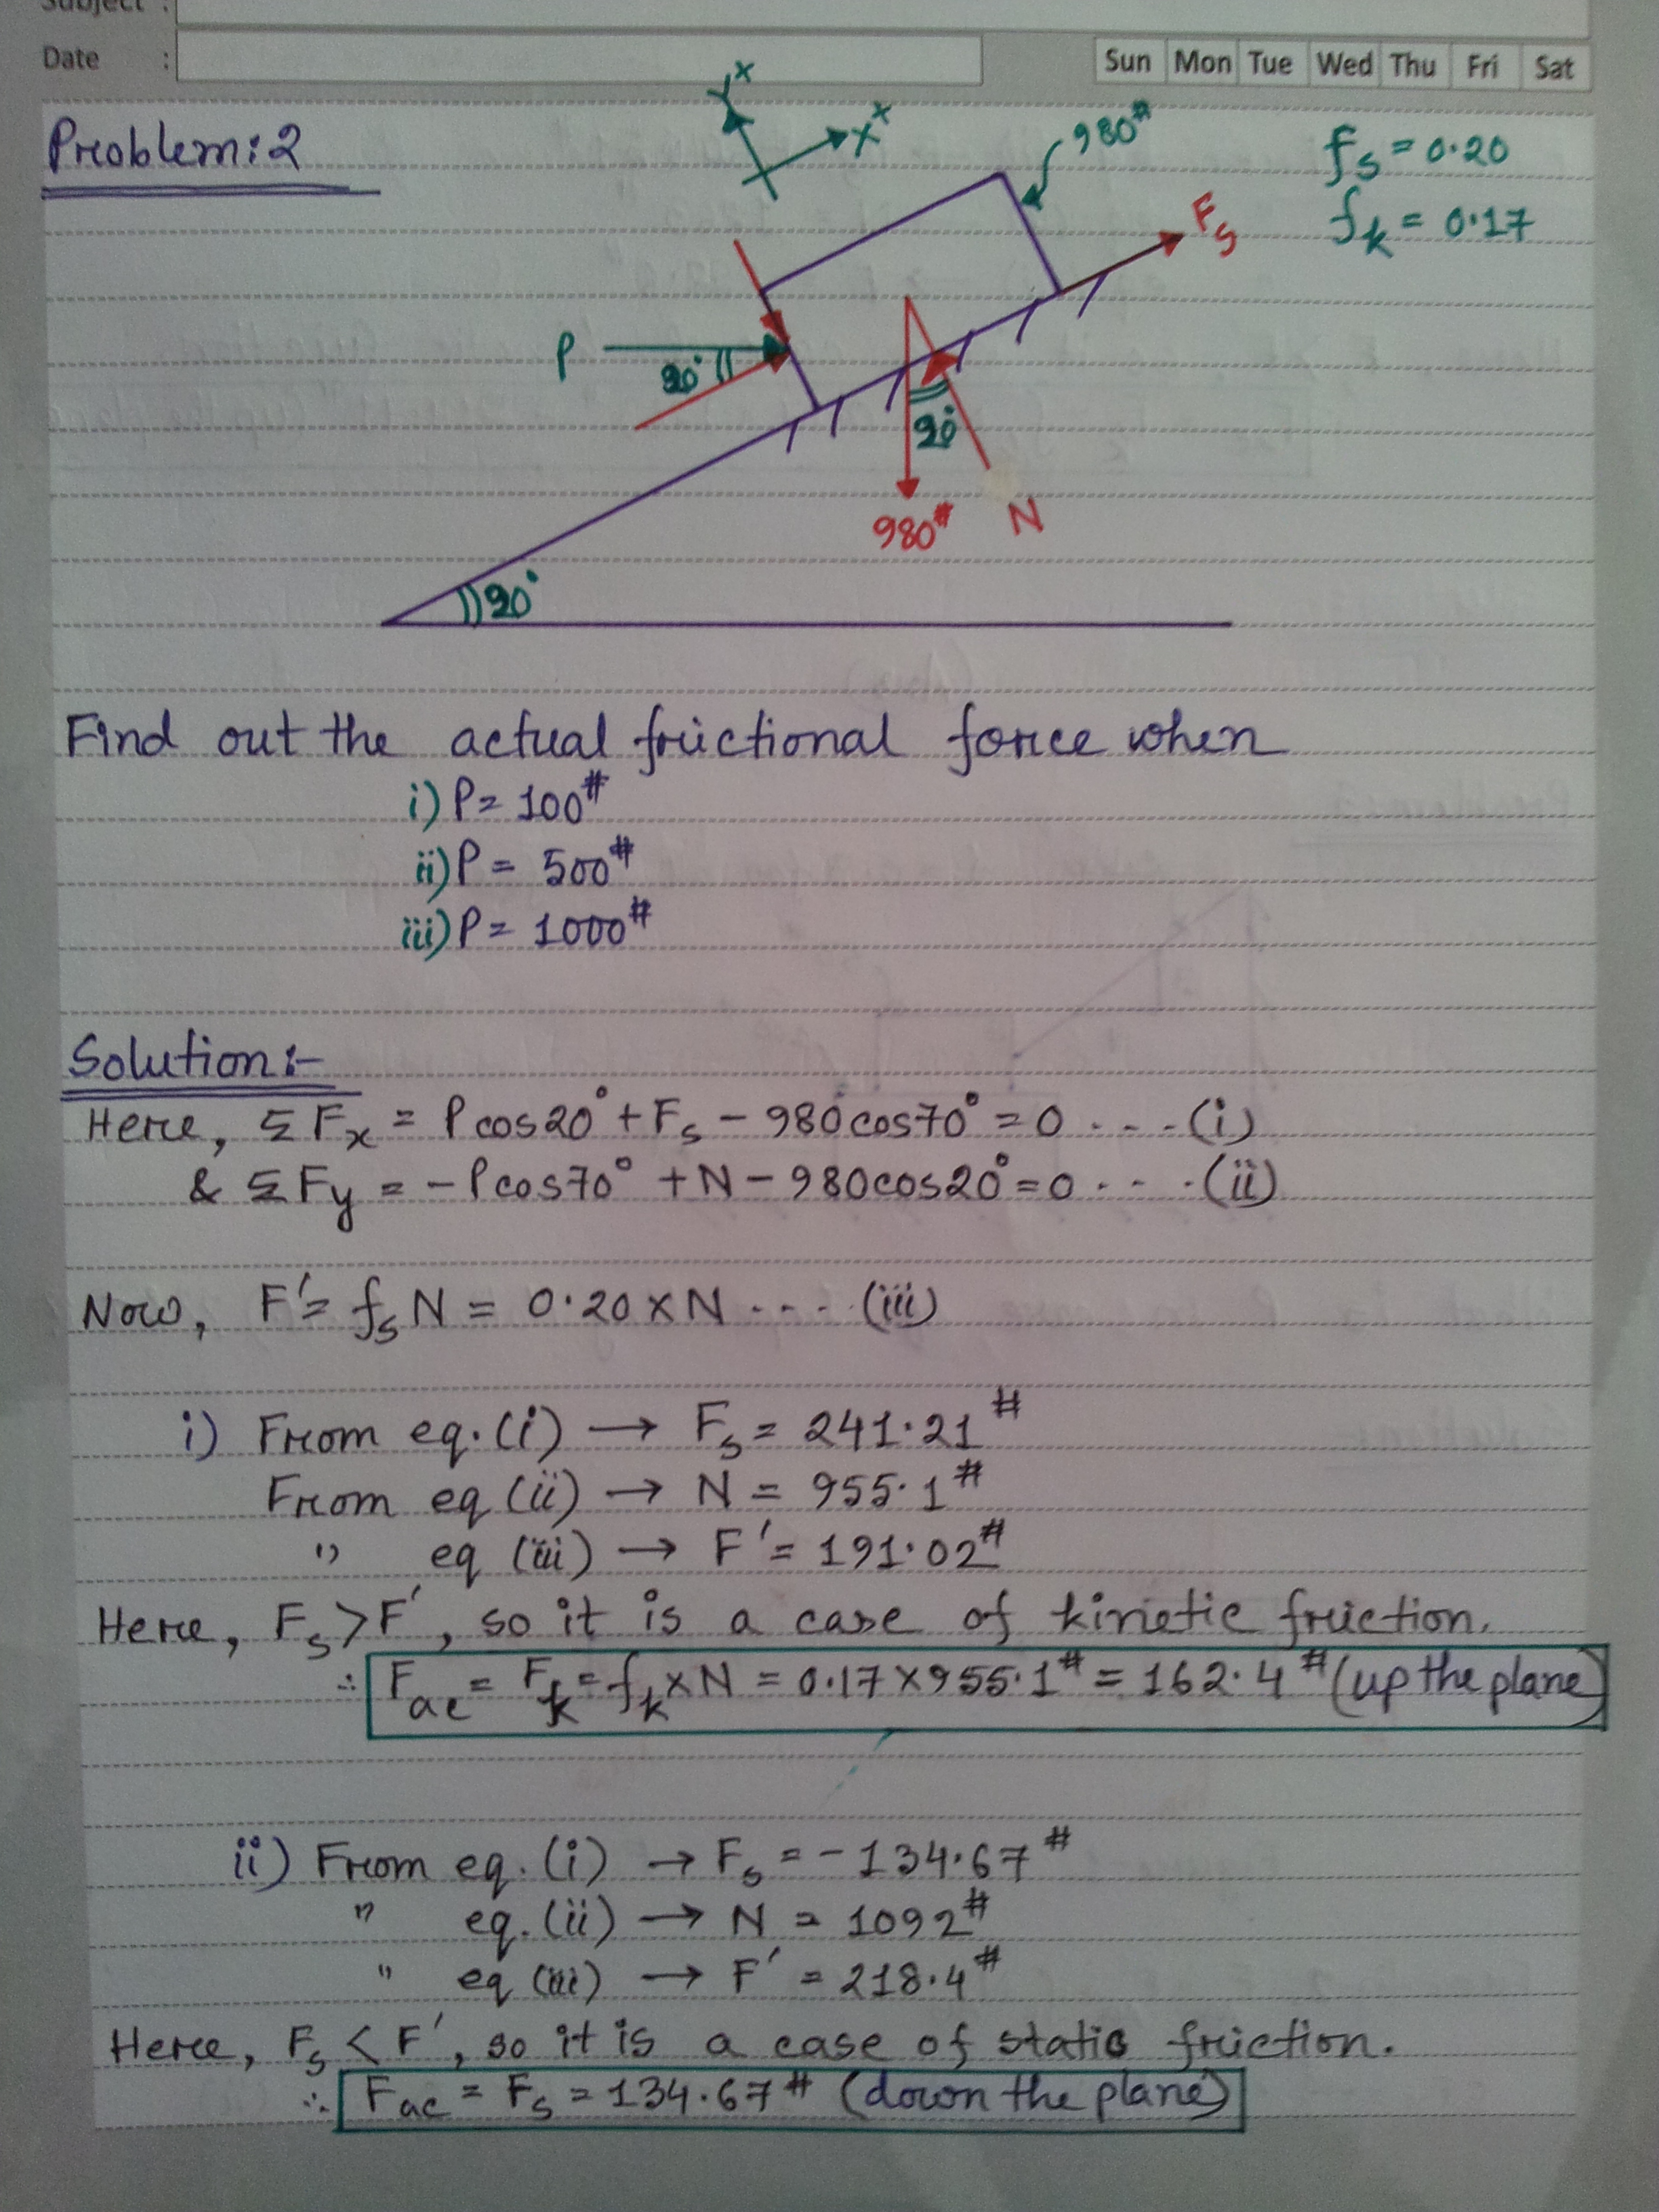 Subject :
Date :
Sun Mon Tue Wed Thu Fri Sat
Problem:2
Y+
X+
980#
fs = 0.20
fk = 0.17
Fs
P
20°
20°
980#
N
20°
Find out the actual frictional force when
i) P = 100#
ii) P = 500#
iii) P = 1000#
Solution:-
Here, ΣFx = Pcos20° + Fs - 980cos70° = 0 ....(i)
& ΣFy = -Pcos70° + N - 980cos20° = 0 ....(ii)
Now, F' = fsN = 0.20 x N ....(iii)
i) From eq.(i) → Fs = 241.21#
From eq (ii) → N = 955.1#
" eq (iii) → F' = 191.02#
Here, Fs > F', so it is a case of kinetic friction.
∴ Fac = Fk = fk x N = 0.17 x 955.1# = 162.4# (up the plane)
ii) From eq. (i) → Fs = -134.67#
" eq. (ii) → N = 1092#
" eq (iii) → F' = 218.4#
Here, Fs < F', so it is a case of static friction.
∴ Fac = Fs = 134.67# (down the plane)